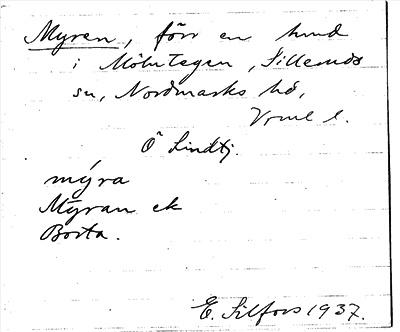 Myren, förr en hund
i Mölntegen, Silleruds
sn, Nordmarks hd,
Vrml l.
Ö Lindtj.
myra
Myran ek
Borta.
E. Silfors 1937.